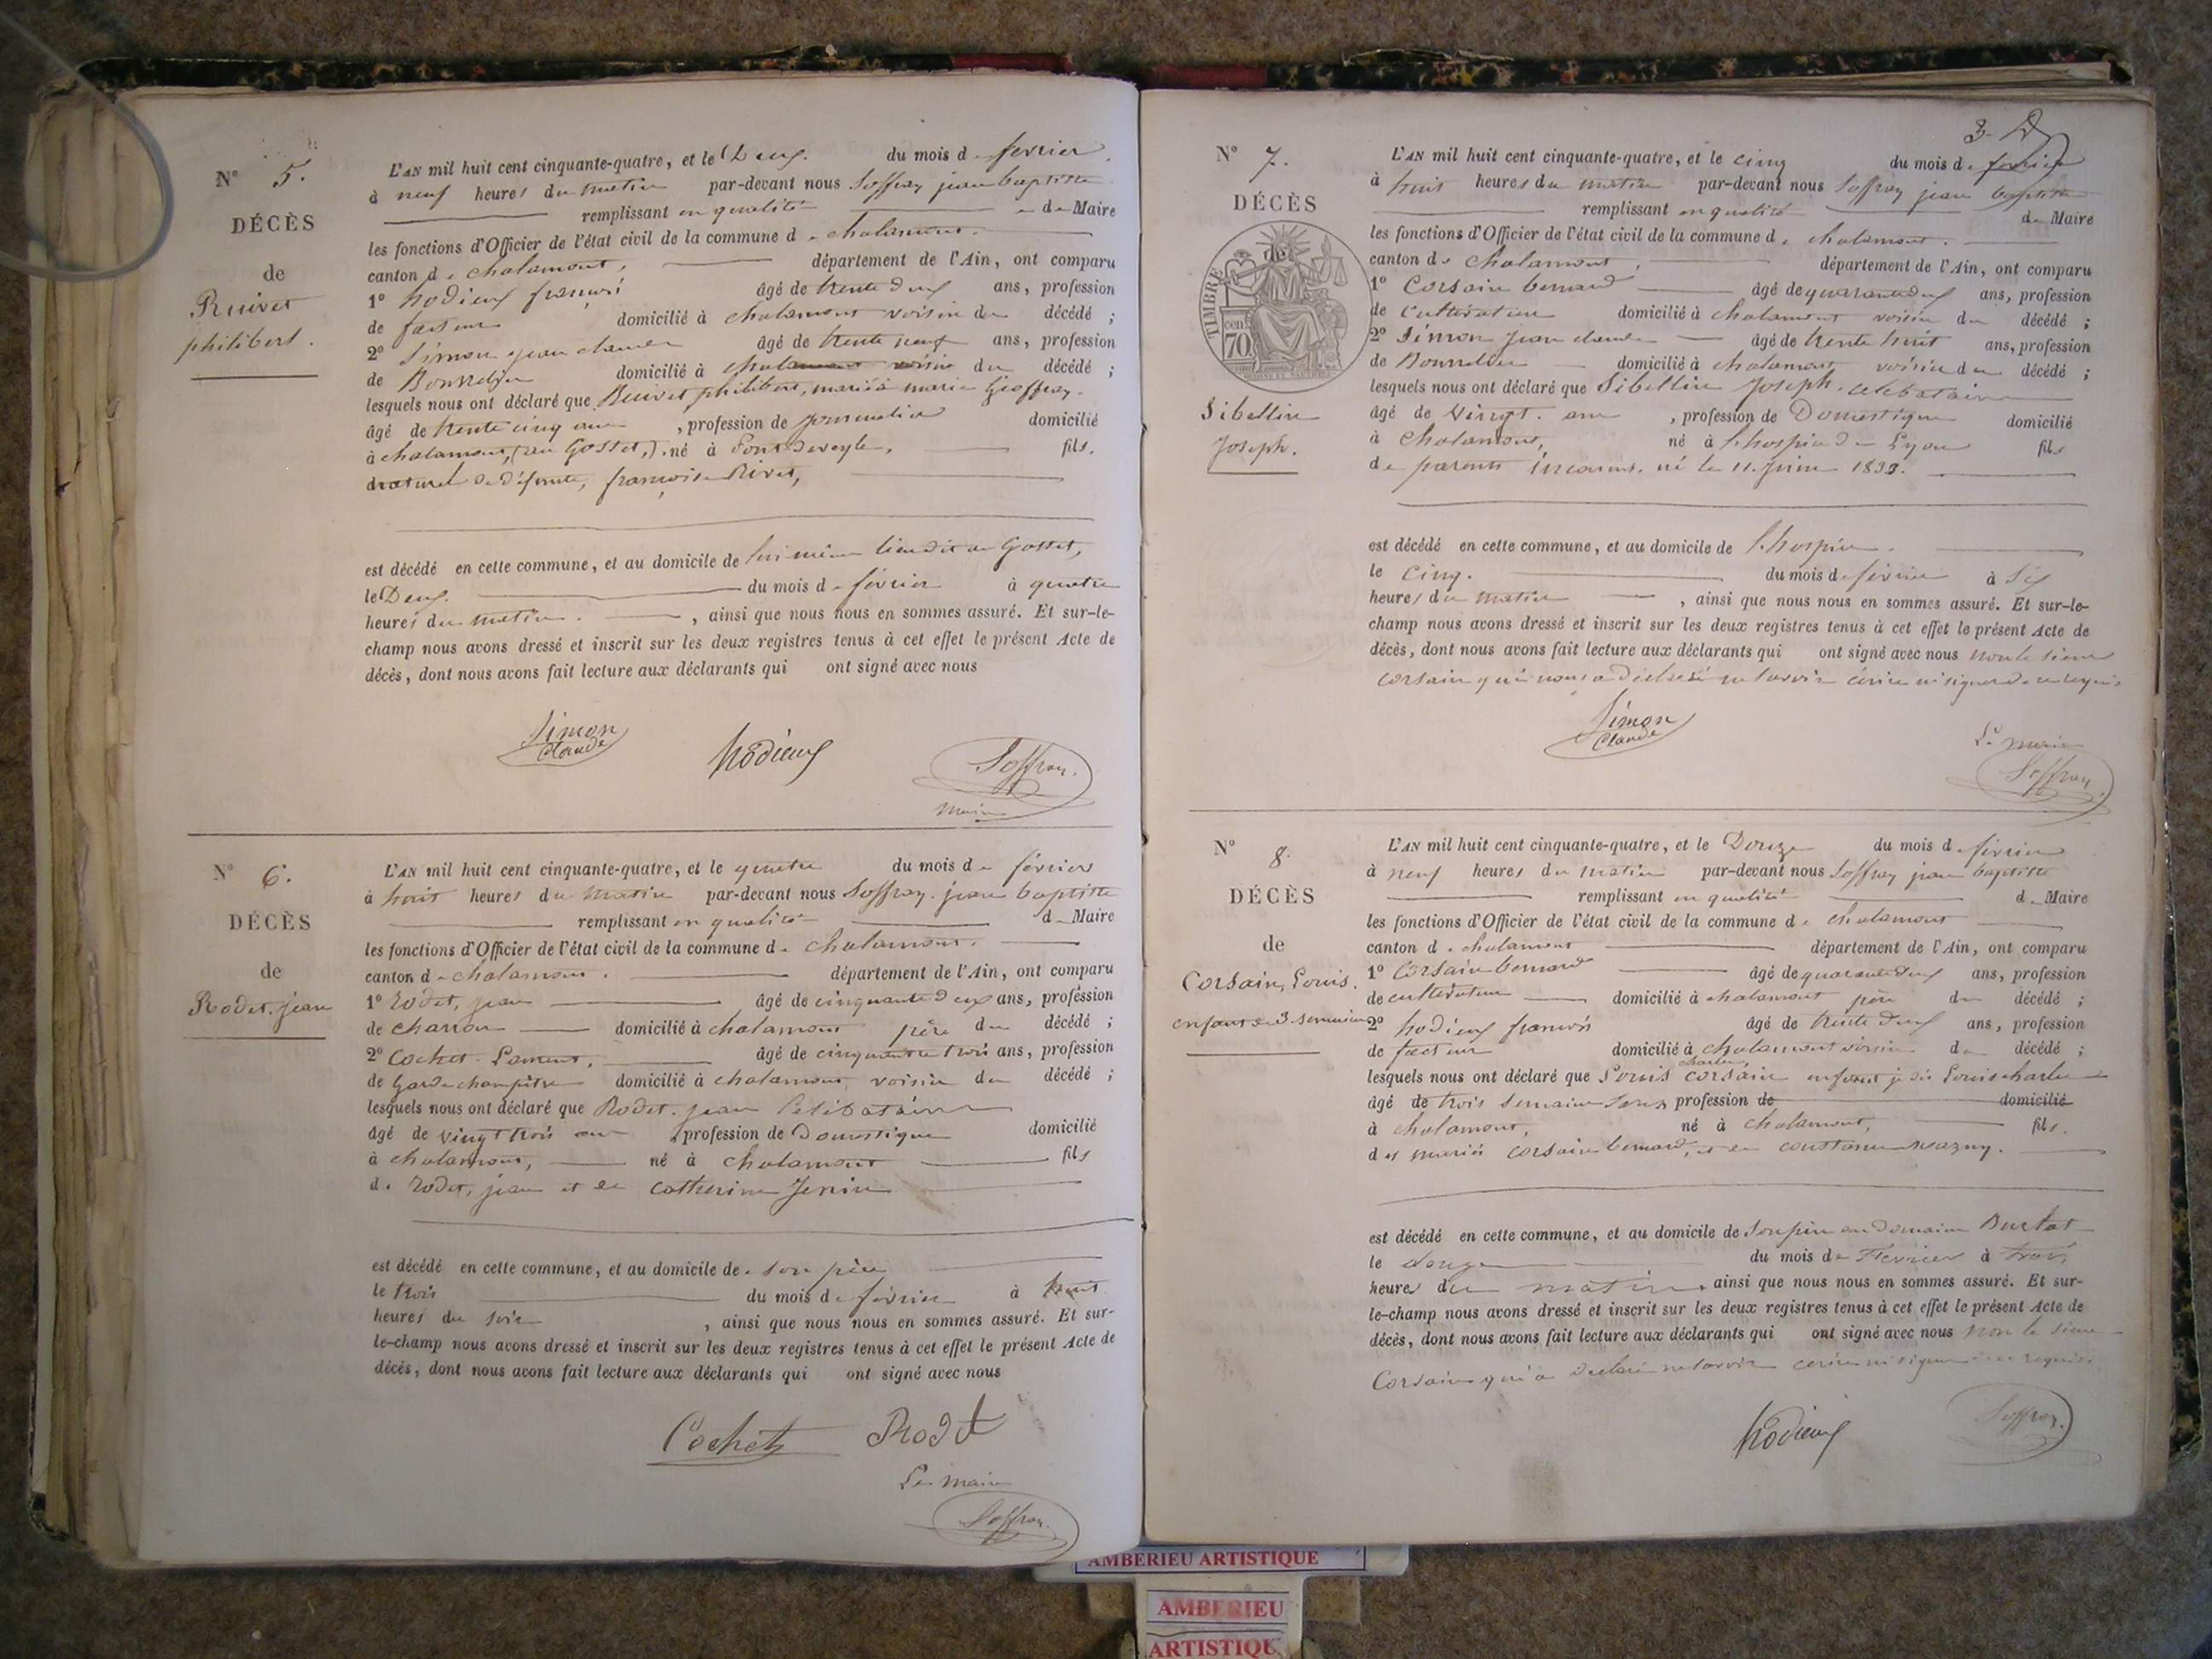 N° 5.
DÉCÈS
de
Ruivet
philibert.
L'AN mil huit cent cinquante-quatre, et le Deux. du mois de fevrier.
à neuf heures du matin par-devant nous Soffray jean baptiste
remplissant en qualité de Maire
les fonctions d'Officier de l'état civil de la commune de chalamont.
canton de chalamont, département de l'Ain, ont comparu
1° hodieux françois âgé de trente deux ans, profession
de facteur domicilié à chalamont voisin du décédé ;
2° Simon jean claude âgé de trente neuf ans, profession
de Bourrelier domicilié à chalamont voisin du décédé ;
lesquels nous ont déclaré que Ruivet philibert, marié à marie Geoffray.
âgé de trente cinq ans , profession de journalier domicilié
à chalamont, (au Gottet,) né à Pont deveyle, fils.
naturel de défunte, françoise Rivet,
est décédé en cette commune, et au domicile de lui même lieu dit au Gottet,
le Deux. du mois de février à quatre
heures du matin. , ainsi que nous nous en sommes assuré. Et sur-le-
champ nous avons dressé et inscrit sur les deux registres tenus à cet effet le présent Acte de
décès, dont nous avons fait lecture aux déclarants qui ont signé avec nous
Simon
Claude
hodieux
Soffray.
maire
N° 6.
DÉCÈS
de
Rodet. jean
L'AN mil huit cent cinquante-quatre, et le quatre du mois de février
à huit heures du matin par-devant nous Soffray. jean baptiste
remplissant en qualité de Maire
les fonctions d'Officier de l'état civil de la commune de chalamont.
canton de chalamont. département de l'Ain, ont comparu
1° rodet, jean âgé de cinquante deux ans, profession
de charron domicilié à chalamont père du décédé ;
2° Cochet. Laurent, âgé de cinquante trois ans, profession
de Garde champêtre domicilié à chalamont voisin du décédé ;
lesquels nous ont déclaré que Rodet. jean Célibataire
âgé de vingt trois ans , profession de Domestique domicilié
à chalamont, né à chalamont fils
de rodet, jean et de catherine
est décédé en cette commune, et au domicile de son père
le trois du mois de février à huit
heures du soir , ainsi que nous nous en sommes assuré. Et sur-
le-champ nous avons dressé et inscrit sur les deux registres tenus à cet effet le présent Acte de
décès, dont nous avons fait lecture aux déclarants qui ont signé avec nous
Cochet Rodet
Le maire
Soffray.
3.
N° 7.
DÉCÈS
de
TIMBRE
cen
70
Sibellin
Joseph.
L'AN mil huit cent cinquante-quatre, et le cinq du mois de fevrier
à huit heures du matin par-devant nous Soffray jean baptiste
remplissant en qualité de Maire
les fonctions d'Officier de l'état civil de la commune de chalamont.
canton de chalamont, département de l'Ain, ont comparu
1° Corsain bernard âgé de quarante deux ans, profession
de cultivateur domicilié à chalamont voisin du décédé ;
2° Simon jean claude âgé de trente huit ans, profession
de Bourrelier domicilié à chalamont voisin du décédé ;
lesquels nous ont déclaré que Sibellin Joseph. celibataire
âgé de vingt. ans , profession de Domestique domicilié
à chalamont, né à l'hospice de Lyon fils
de parents inconnus. né le 11. juin 1833.
est décédé en cette commune, et au domicile de l'hospice.
le cinq. du mois de février à Six
heures du matin , ainsi que nous nous en sommes assuré. Et sur-le-
champ nous avons dressé et inscrit sur les deux registres tenus à cet effet le présent Acte de
décès, dont nous avons fait lecture aux déclarants qui ont signé avec nous non le sieur
corsain qui nous a déclaré ne savoir écrire ni signer de ce requis
Simon
Claude
Le maire
Soffray.
N° 8.
DÉCÈS
de
Corsain, Louis.
enfant de 3 semaines
L'AN mil huit cent cinquante-quatre, et le Douze du mois de février
à neuf heures du matin par-devant nous Soffray jean baptiste
remplissant en qualité de Maire
les fonctions d'Officier de l'état civil de la commune de chalamont
canton de chalamont département de l'Ain, ont comparu
1° Corsain bernard âgé de quarante deux ans, profession
de cultivateur domicilié à chalamont père du décédé ;
2° hodieux françois âgé de trente deux ans, profession
de facteur domicilié à chalamont voisin du décédé ;
charles
lesquels nous ont déclaré que Louis corsain enfant je dis Louis charles
âgé de trois semaines sans profession de domicilié
à chalamont, né à chalamont, fils.
des mariés corsain bernard, et de constance
est décédé en cette commune, et au domicile de son père au domaine Burtat
le douze du mois de Fevrier à trois
heures du matin. ainsi que nous nous en sommes assuré. Et sur-
le-champ nous avons dressé et inscrit sur les deux registres tenus à cet effet le présent Acte de
décès, dont nous avons fait lecture aux déclarants qui ont signé avec nous non le sieur
Corsain qui a déclaré ne savoir écrire ni signer de ce requis.
hodieux
Soffray.
AMBERIEU ARTISTIQUE
AMBERIEU
ARTISTIQUE